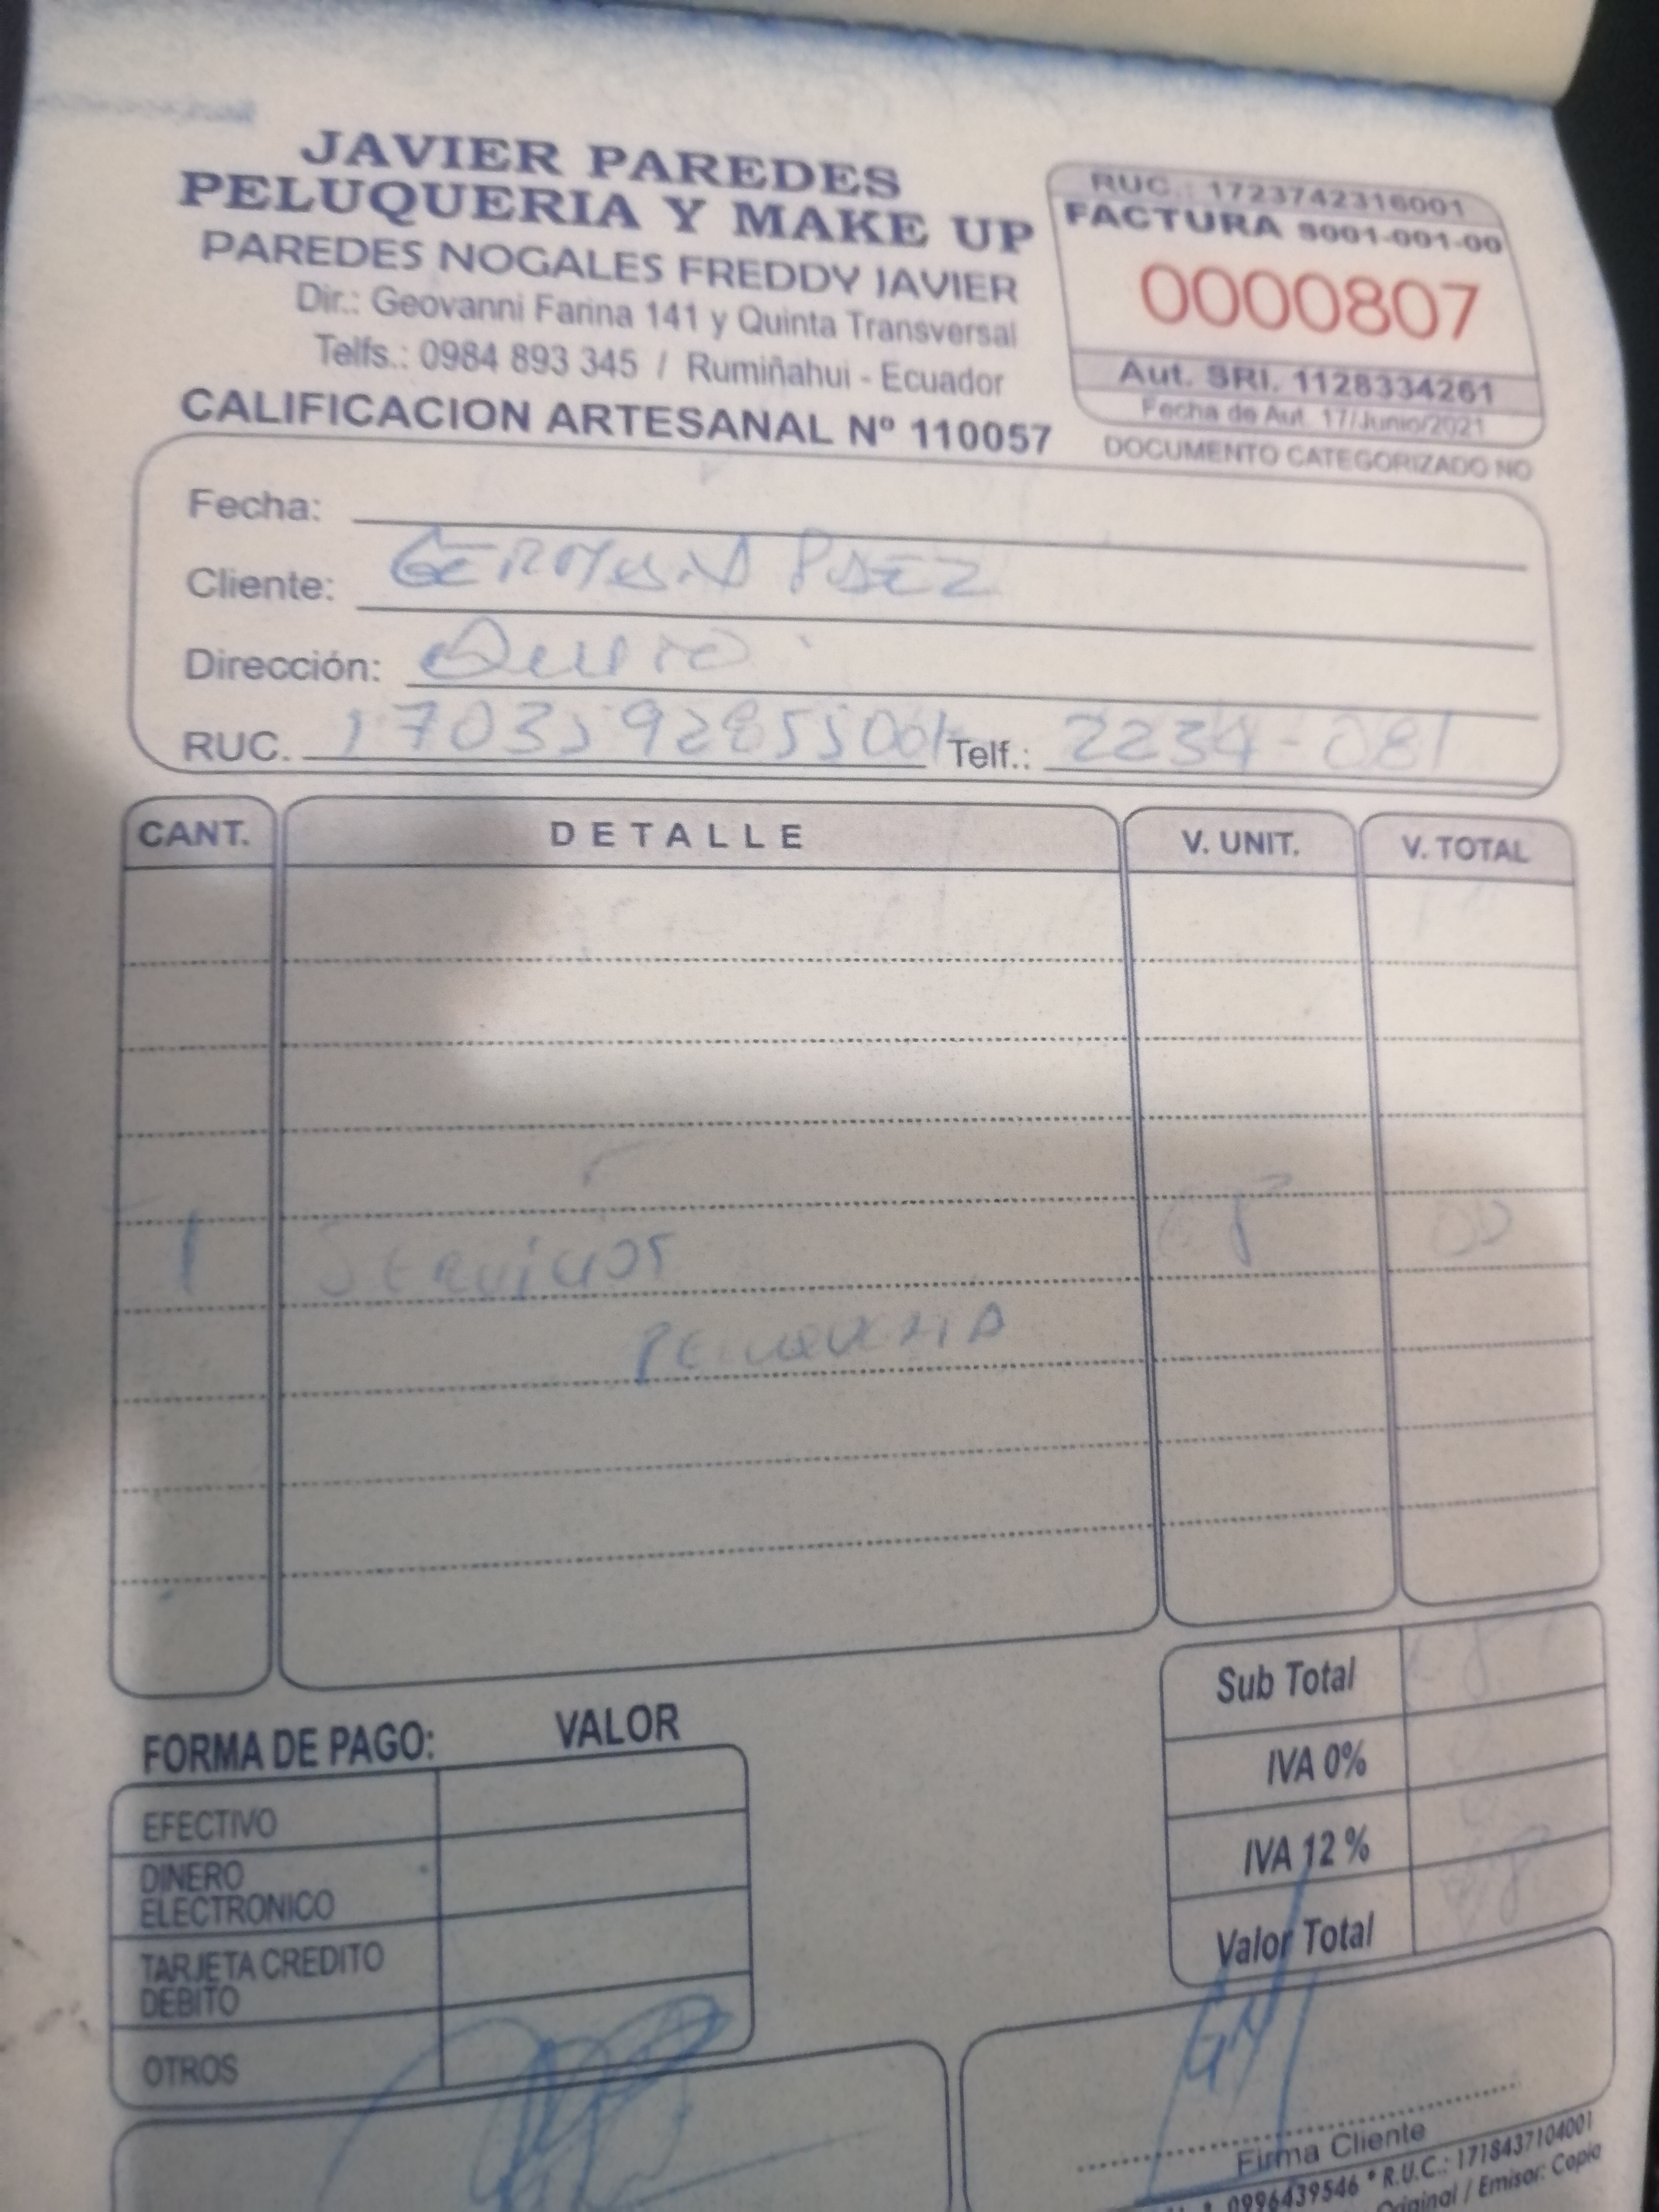 JAVIER PAREDES
PELUQUERIA Y MAKE UP
PAREDES NOGALES FREDDY JAVIER
Dir.: Geovanni Farina 141 y Quinta Transversal
Telfs.: 0984 893 345 / Rumiñahui - Ecuador
CALIFICACION ARTESANAL Nº 110057
RUC.: 1723742316001
FACTURA S001-001-00
0000807
Aut. SRI. 1128334261
Fecha de Aut. 17/Junio/2021
DOCUMENTO CATEGORIZADO NO
Fecha:
Cliente: PAEZ
Dirección: Quito
RUC. Telf.: 2234-081
CANT. DETALLE V. UNIT. V. TOTAL
1 Servicios
Peluqueria
Sub Total
IVA 0%
IVA 12%
Valor Total
FORMA DE PAGO: VALOR
EFECTIVO
DINERO ELECTRONICO
TARJETA CREDITO DEBITO
OTROS
Firma Cliente
0996439546 * R.U.C.: 1718437104001
Original / Emisor: Copia